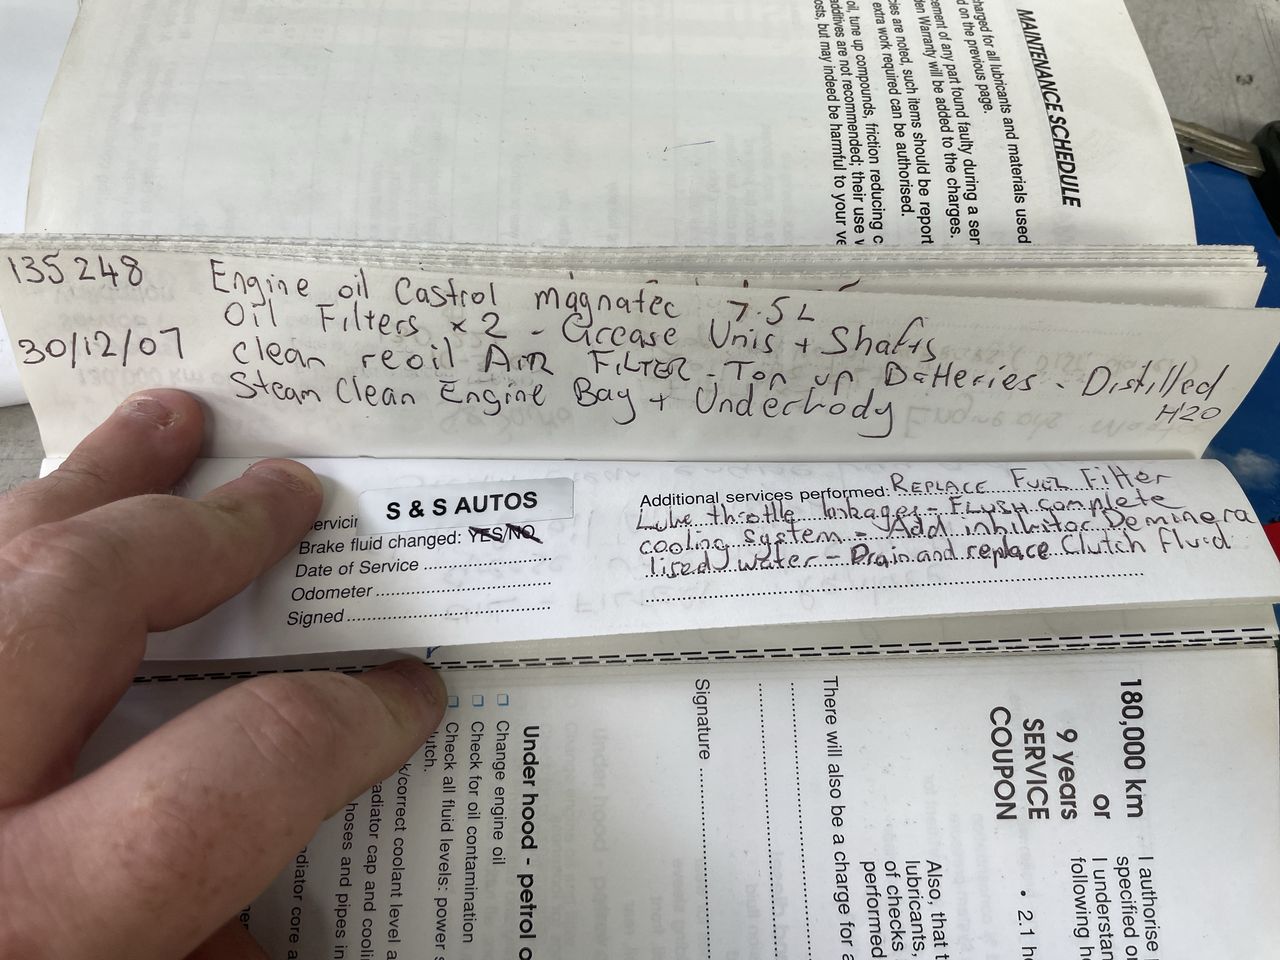 MAINTENANCE SCHEDULE
harged for all lubricants and materials used
d on the previous page.
ement of any part found faulty during a ser
en Warranty will be added to the charges.
ies are noted, such items should be report
extra work required can be authorised.
oil, tune up compounds, friction reducing c
additives are not recommended; their use w
osts, but may indeed be harmful to your ve
135248 Engine oil Castrol magnatec 7.5L
Oil Filters x2 - Grease Unis + Shafts
30/12/07 clean reoil AIR FILTER - Top up Batteries - Distilled
Steam Clean Engine Bay + Underbody H20
S & S AUTOS
ervicin
Brake fluid changed: YES/NO
Date of Service
Odometer
Signed
Additional services performed: REPLACE FUEL Filter
Lube throttle linkages - FLUSH complete
cooling system - Add inhibitor Deminera
lised water - Drain and replace Clutch Fluid
180,000 km
or
9 years
SERVICE
COUPON
I authorise
specified o
I understan
following h
• 2.1 h
Also, that t
lubricants,
of checks
performed
There will also be a charge for a
Signature
Under hood - petrol o
Change engine oil
Check for oil contamination
Check all fluid levels: power s
lutch.
k/correct coolant level a
adiator cap and cooli
hoses and pipes in
diator core a